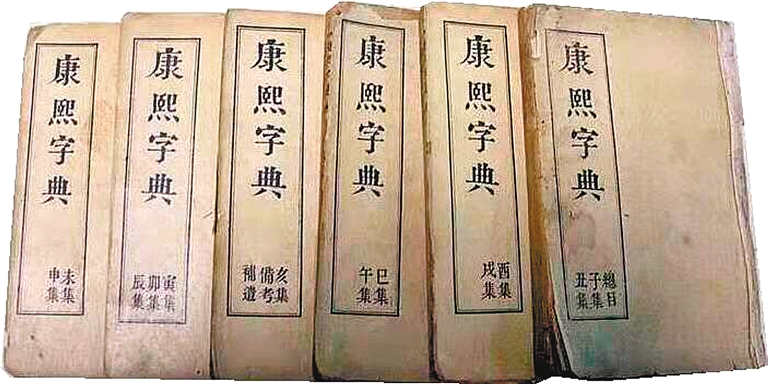 康熙字典
未集
申集
康熙字典
寅集
卯集
辰集
康熙字典
亥集
備考
補遺
康熙字典
巳集
午集
康熙字典
酉集
戌集
康熙字典
總目
子集
丑集